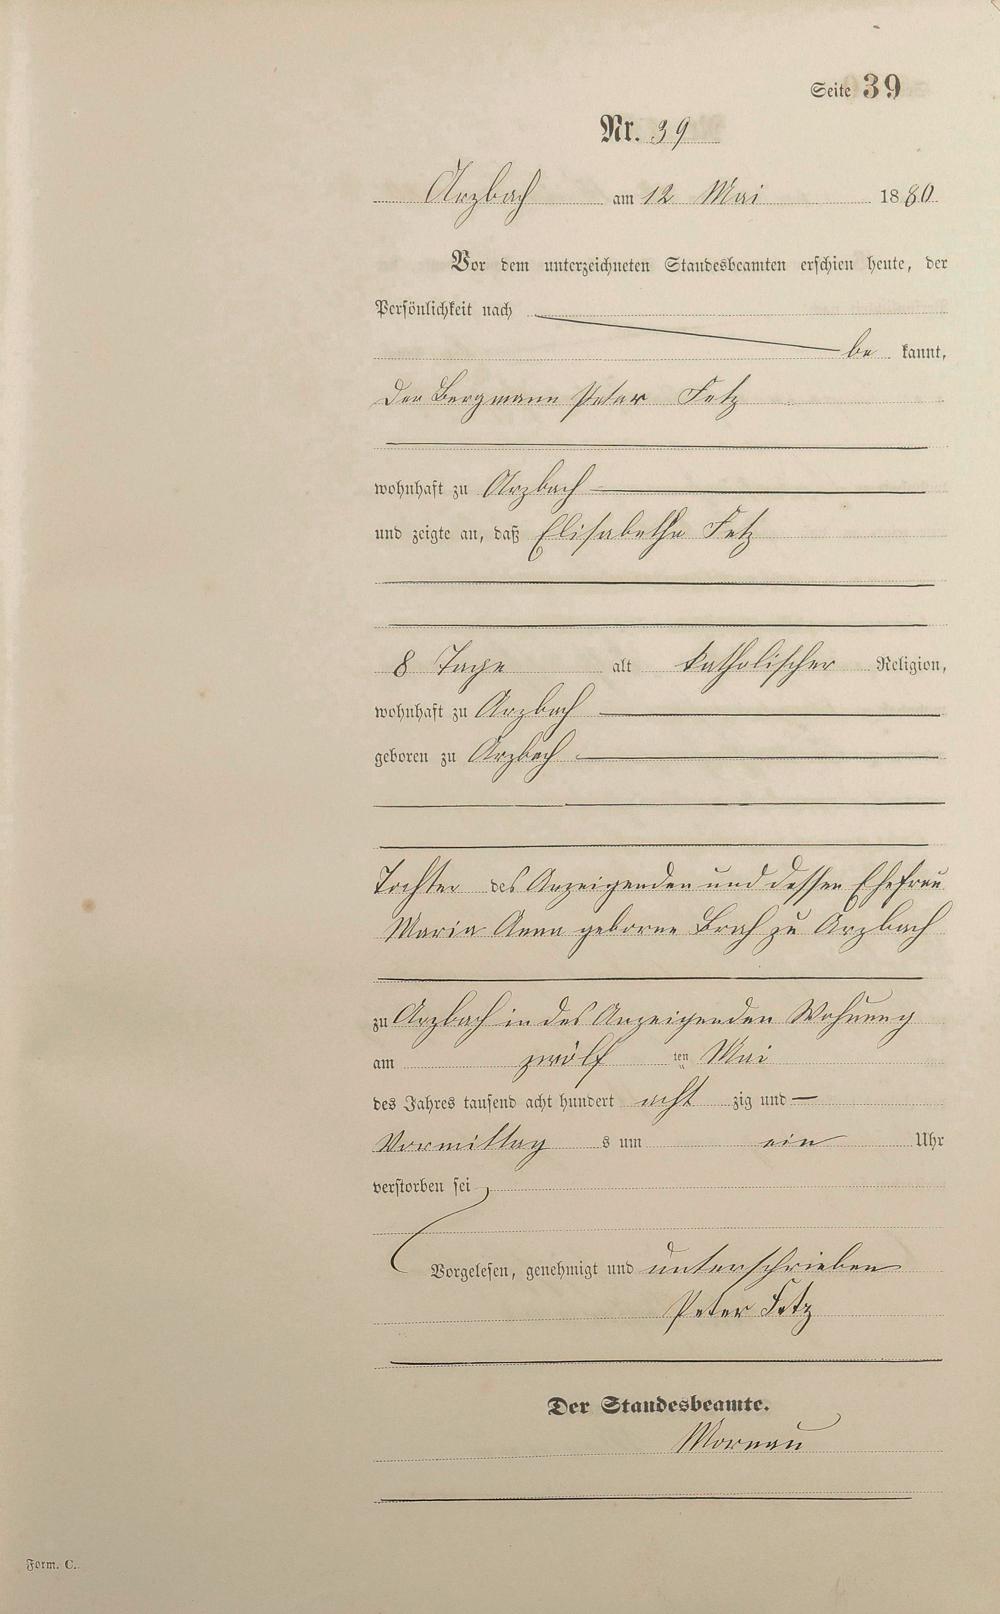 Seite 39
Nr. 39
Arzbach am 12 Mai 1880.
Vor dem unterzeichneten Standesbeamten erschien heute, der
Persönlichkeit nach
be kannt,
der Bergmann Peter Fetz
wohnhaft zu Arzbach
und zeigte an, daß Elisabetha Fetz
8 Tage alt katholischer Religion,
wohnhaft zu Arzbach
geboren zu Arzbach
Tochter des Anzeigenden und dessen Ehefrau
Maria Anna geborne Brah zu Arzbach
zu Arzbach in des Anzeigenden Wohnung
am zwölf ten Mai
des Jahres tausend acht hundert acht zig und —
Vormittag s um ein Uhr
verstorben sei,
Vorgelesen, genehmigt und unterschrieben
Peter Fetz
Der Standesbeamte.
Mornau
Form. C.